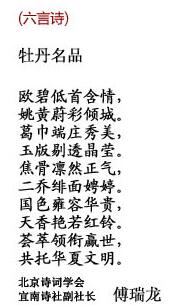 (六言诗)
牡丹名品
欧碧低首含情，
姚黄蔚彩倾城。
葛巾端庄秀美，
玉版剔透晶莹。
焦骨凛然正气，
二乔绯面娉婷。
国色雍容华贵，
天香艳若红铃。
荟萃领衔赢世，
共托华夏文明。
北京诗词学会
宜南诗社副社长 傅瑞龙